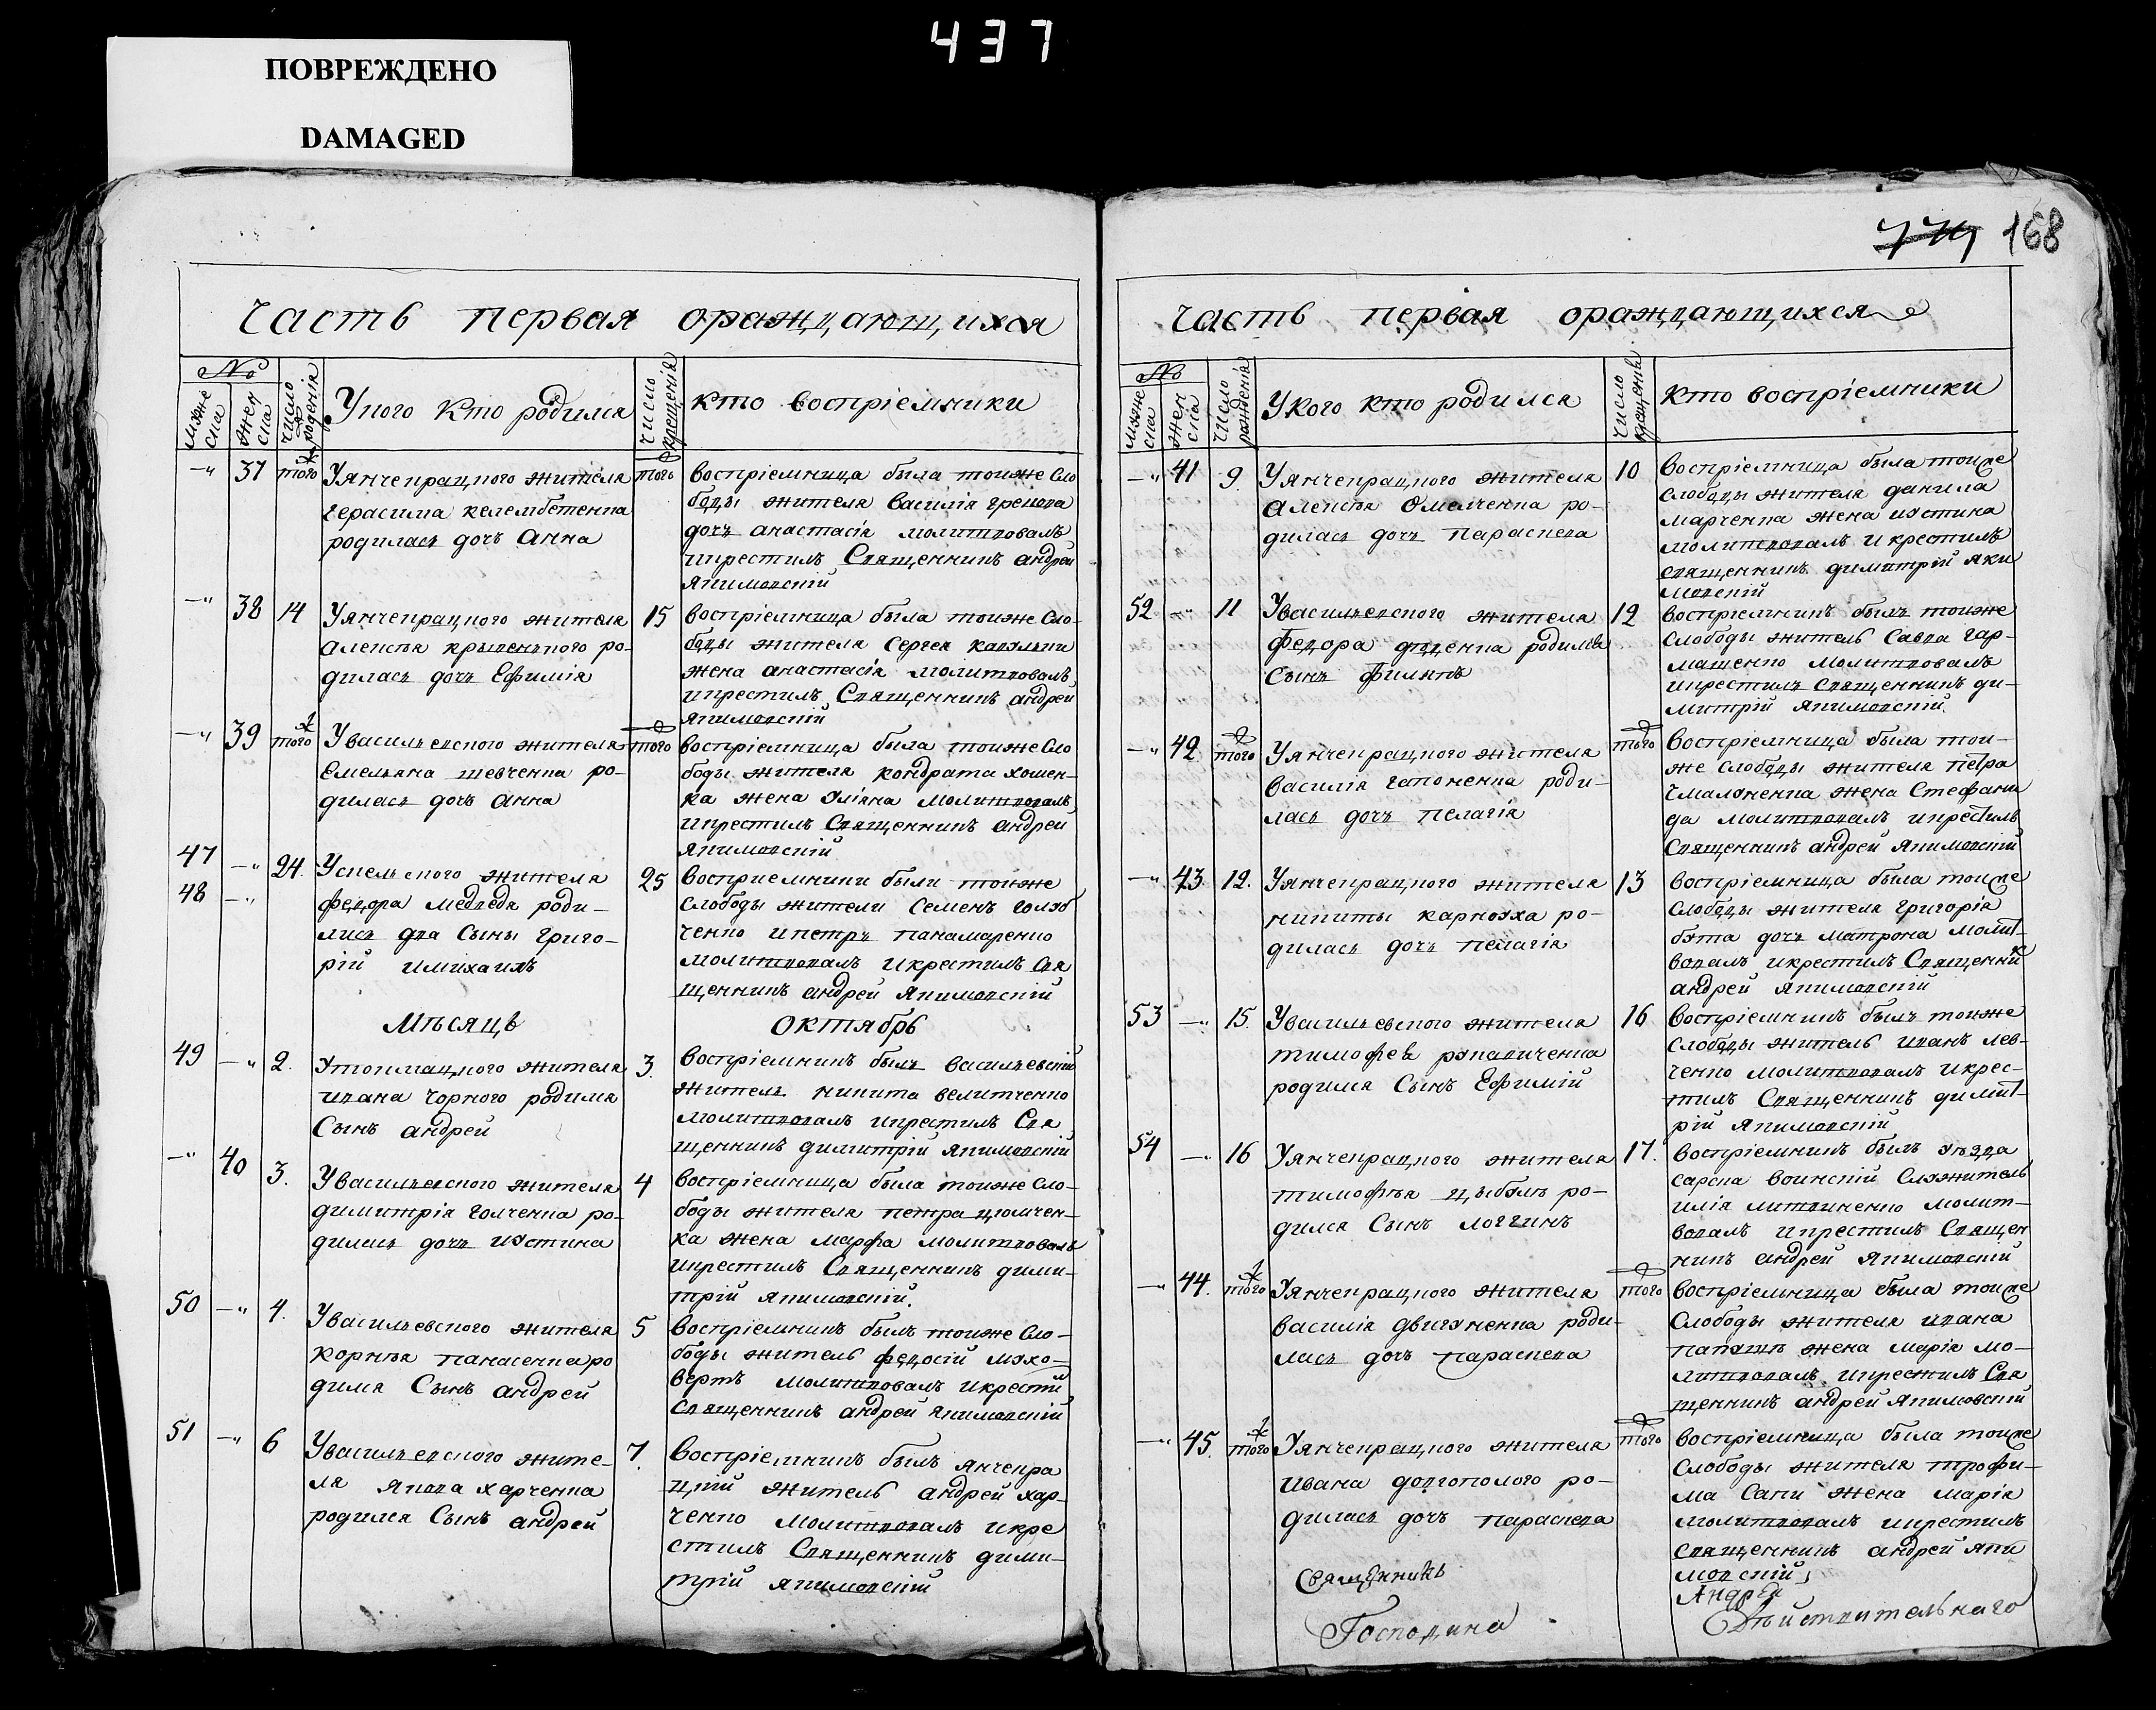 437
ПОВРЕЖДЕНО
DAMAGED
Часть первая ораждающихся
№
мȣже ска
жен ска
число рожденія
Укого кто родился
число крещенія
кто воспріемники
—" 37 того Уянчекрацкого жителя
герасима келембетенка
родилась дочъ анна
того воспріемница была тоиже сло
боды жителя василія грекова
дочъ анастасія молитвовалъ
икрестилъ Священникъ андреи
якимовскій
—" 38 14 Уянчекрацкого жителя
алексѣя крывенкого ро-
дилась дочъ Ефимія
15 воспріемница была тоиже сло-
боды жителя сергея
жена анастасія молитвовалъ
икрестилъ Священникъ андреи
якимовскій
—" 39 того Увасильевского жителя
Емельяна шевченка ро-
дилась дочъ анна
того воспріемница была тоиже сло
боды жителя кондрата хошен-
ка жена ȣліяна молитвовалъ
икрестилъ Священникъ андреи
якимовскій
47 —" 24. Успельского жителя
48 —" федора медведя роди-
лись два сыны григо-
рій имихаилъ
25 восприемники были тоиже
слободы жители семенъ голȣб
ченко ипетръ панамаренко
молитвовалъ икрестилъ Свя
щенникъ андреи якимовскій
Мѣсяцъ октябрь
49 —" 2. Утокмацкого жителя
ивана чорного родился
Сынъ андреи
3. воспріемникъ былъ васильевскій
житель никита велитченко
молитвовалъ икрестилъ Свя
щенникъ димитрій якимовскій
—" 40 3. Увасильевского жителя
димитрія голченка ро-
дилась дочъ иȣстина
4 воспріемница была тоиже сло-
боды жителя петра цюмчен-
ка жена марфа молитвовалъ
икрестилъ Священникъ дими-
трій якимовскій.
50 —" 4. Увасильевского жителя
корнѣя панасенка ро
дился Сынъ андреи
5 воспріемникъ былъ тоиже сло-
боды житель федосій мȣхо-
вертъ молитвовалъ икрестил
Священникъ андреи якимовскій
51 —" 6 Увасильевского жите-
ля якова харченка
родился Сынъ андреи
7. воспріемникъ былъ янчекра
цкій житель андреи хар-
ченко молитвовалъ икре
стилъ Священникъ дими-
трій якимовскій
779 168
Часть первая ораждающихся
№
мȣже ска
жен ска
число рожденія
Укого кто родился
число крещенія
кто воспріемники
—" 41 9. Уянчекрацкого жителя
алексѣя омелченка ро-
дилась дочъ параскева
10 воспріемница была тоиже
слободы жителя данила
марченка жена иȣстина
молитвовалъ икрестилъ
священникъ димитрій яки
мовскій
52 —" 11 Увасильевского жителя
федора родился
Сынъ филипъ
12 воспріемникъ былъ тоиже
слободы житель савва гар-
машенко молитвовалъ
икрестилъ священникъ ди-
митрій якимовскій.
—" 42 того Уянчекрацкого жителя
василія гапоненка роди-
лась дочъ пелагія
того воспріемница была тои-
же слободы жителя петра
жена Стефани
да молитвовалъ икрестилъ
Священникъ андреи якимовскій
—" 43. 12. Уянчекрацкого жителя
никиты карнȣха ро-
дилась дочъ пелагія
13 воспріемница была тоиже
слободы жителя григорія
бȣта дочъ матрона молит-
вовалъ икрестилъ Священник
андреи якимовскій
53 —" 15. Увасильевского жителя
тимофея рȣкавиченка
родился Сынъ Ефимій
16 воспріемникъ былъ тоиже
слободы житель иванъ лев-
ченко молитвовалъ икрес-
тилъ Священникъ димит-
рій якимовскій
54 —" 16 Уянчекрацкого жителя
тимофѣя цыбȣль ро-
дился Сынъ логгинъ
17. воспріемникъ былъ ȣезда
воинскій слȣжитель
илія литвиненко молит-
вовалъ икрестилъ Священ
никъ андреи якимовскій
—" 44. того Уянчекрацкого жителя
василія двигȣненка роди-
лась дочъ параскева
того воспріемница была тоиже
слободы жителя ивана
жена марія мо-
литвовалъ икрестилъ Свя
щенникъ андреи якимовскій
—" 45. того Уянчекрацкого жителя
ивана долгополого ро-
дилась дочъ параскева
того воспріемница была тоиже
слободы жителя трофи-
ма сапи жена марія
молитвовалъ икрестилъ
священникъ андреи яки
мовскій,
Священникъ Андреи
Господина Дѣйствительнаго